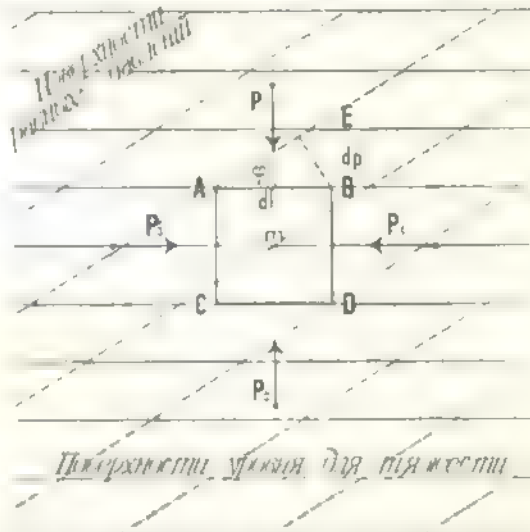 Поверхности
равных давлений
P E
dp
A B
dl
m
P₃ P₁
C D
P₂
Поверхности уровня для тяжести